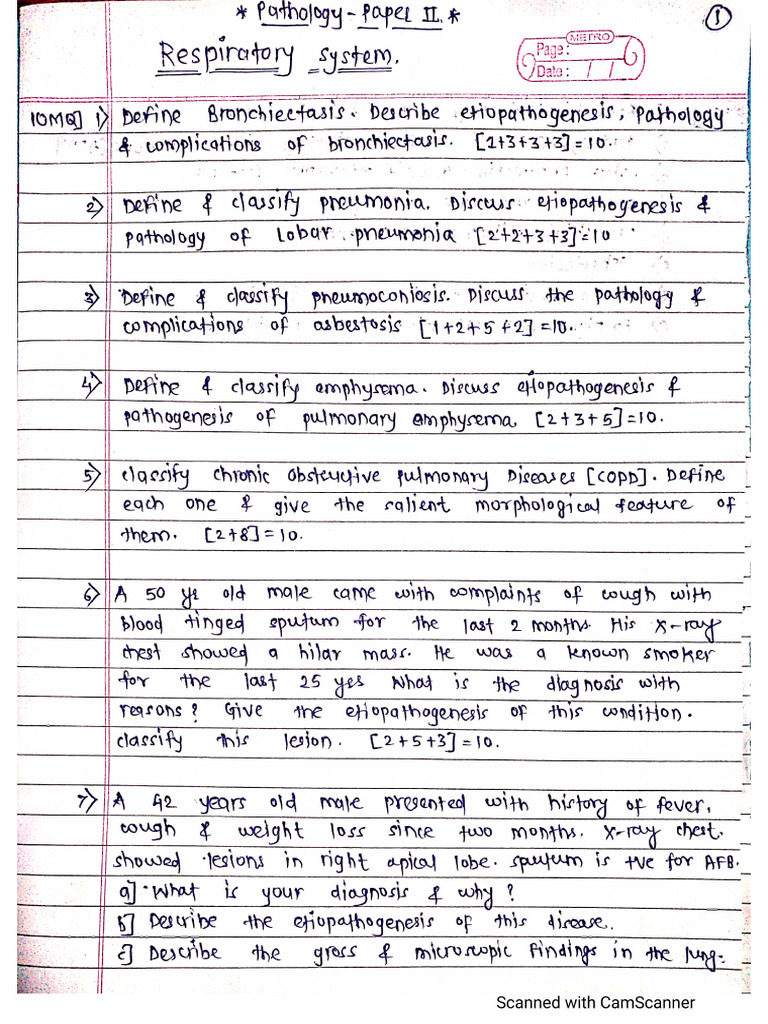 * Pathology - Paper II. *
1
Respiratory system.
METRO
Page:
Date: / /
10MQ] 1) Define Bronchiectasis. Describe etiopathogenesis, Pathology
& complications of bronchiectasis. [2+3+3+3]=10.
2) Define & classify pneumonia. Discuss etiopathogenesis &
pathology of Lobar pneumonia [2+2+3+3]=10
3) Define & classify pneumoconiosis. Discuss the pathology &
complications of asbestosis [1+2+5+2]=10.
4) Define & classify emphysema. Discuss etiopathogenesis &
pathogenesis of pulmonary emphysema [2+3+5]=10.
5) classify chronic obstructive pulmonary Diseases [COPD]. Define
each one & give the salient morphological feature of
them. [2+8]=10.
6) A 50 yr old male came with complaints of cough with
blood tinged sputum for the last 2 months. His x-ray
chest showed a hilar mass. He was a known smoker
for the last 25 yrs What is the diagnosis with
reasons? Give the etiopathogenesis of this condition.
classify this lesion. [2+5+3]=10.
7) A 42 years old male presented with history of fever,
cough & weight loss since two months. x-ray chest.
showed lesions in right apical lobe. sputum is +ve for AFB.
a] What is your diagnosis & why?
b] Describe the etiopathogenesis of this disease.
c] Describe the gross & microscopic findings in the lung.
Scanned with CamScanner